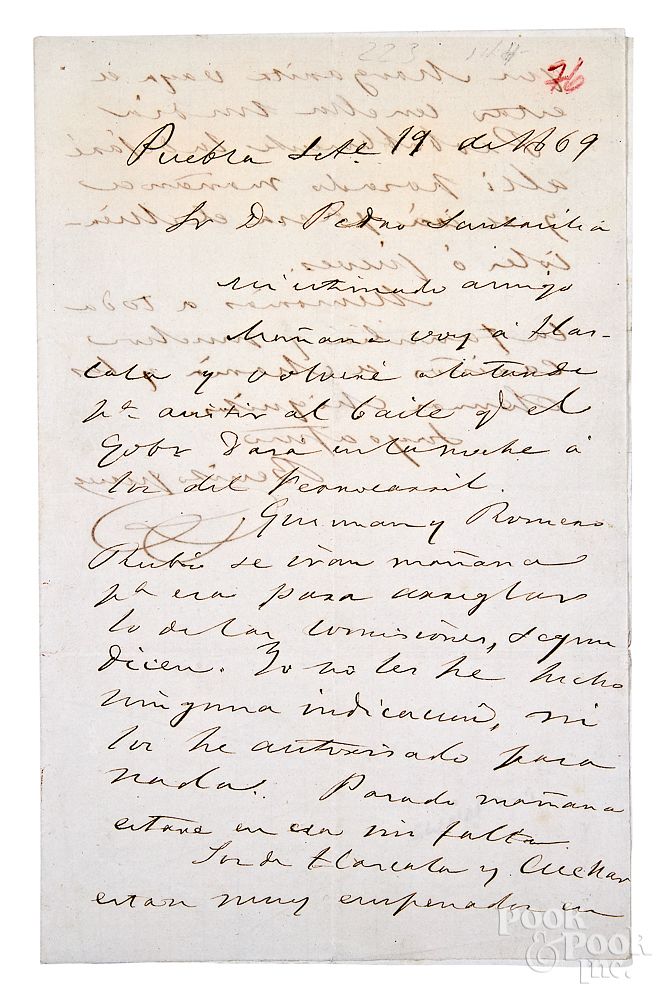 223
76
Puebla Set.e 19 de 1869
Sr D. Pedro Santacilia
Mi estimado amigo
Mañana voy á Tlax-
cala y volveré a la tarde
pa. asistir al baile q. el
Gobr. dara en la noche á
los del Ferrocarril.
Guzman y Romero
Rubio se irán mañana
pa. esa para arreglar
lo de las comisiones, segun
dicen. Yo no les he hecho
ninguna indicacion, ni
los he autorisado para
nada. Pasado mañana
estare en esa sin falta.
Los de Tlaxcala y Cuellar
estan muy empeñados en
POOK
& POOK
INC.